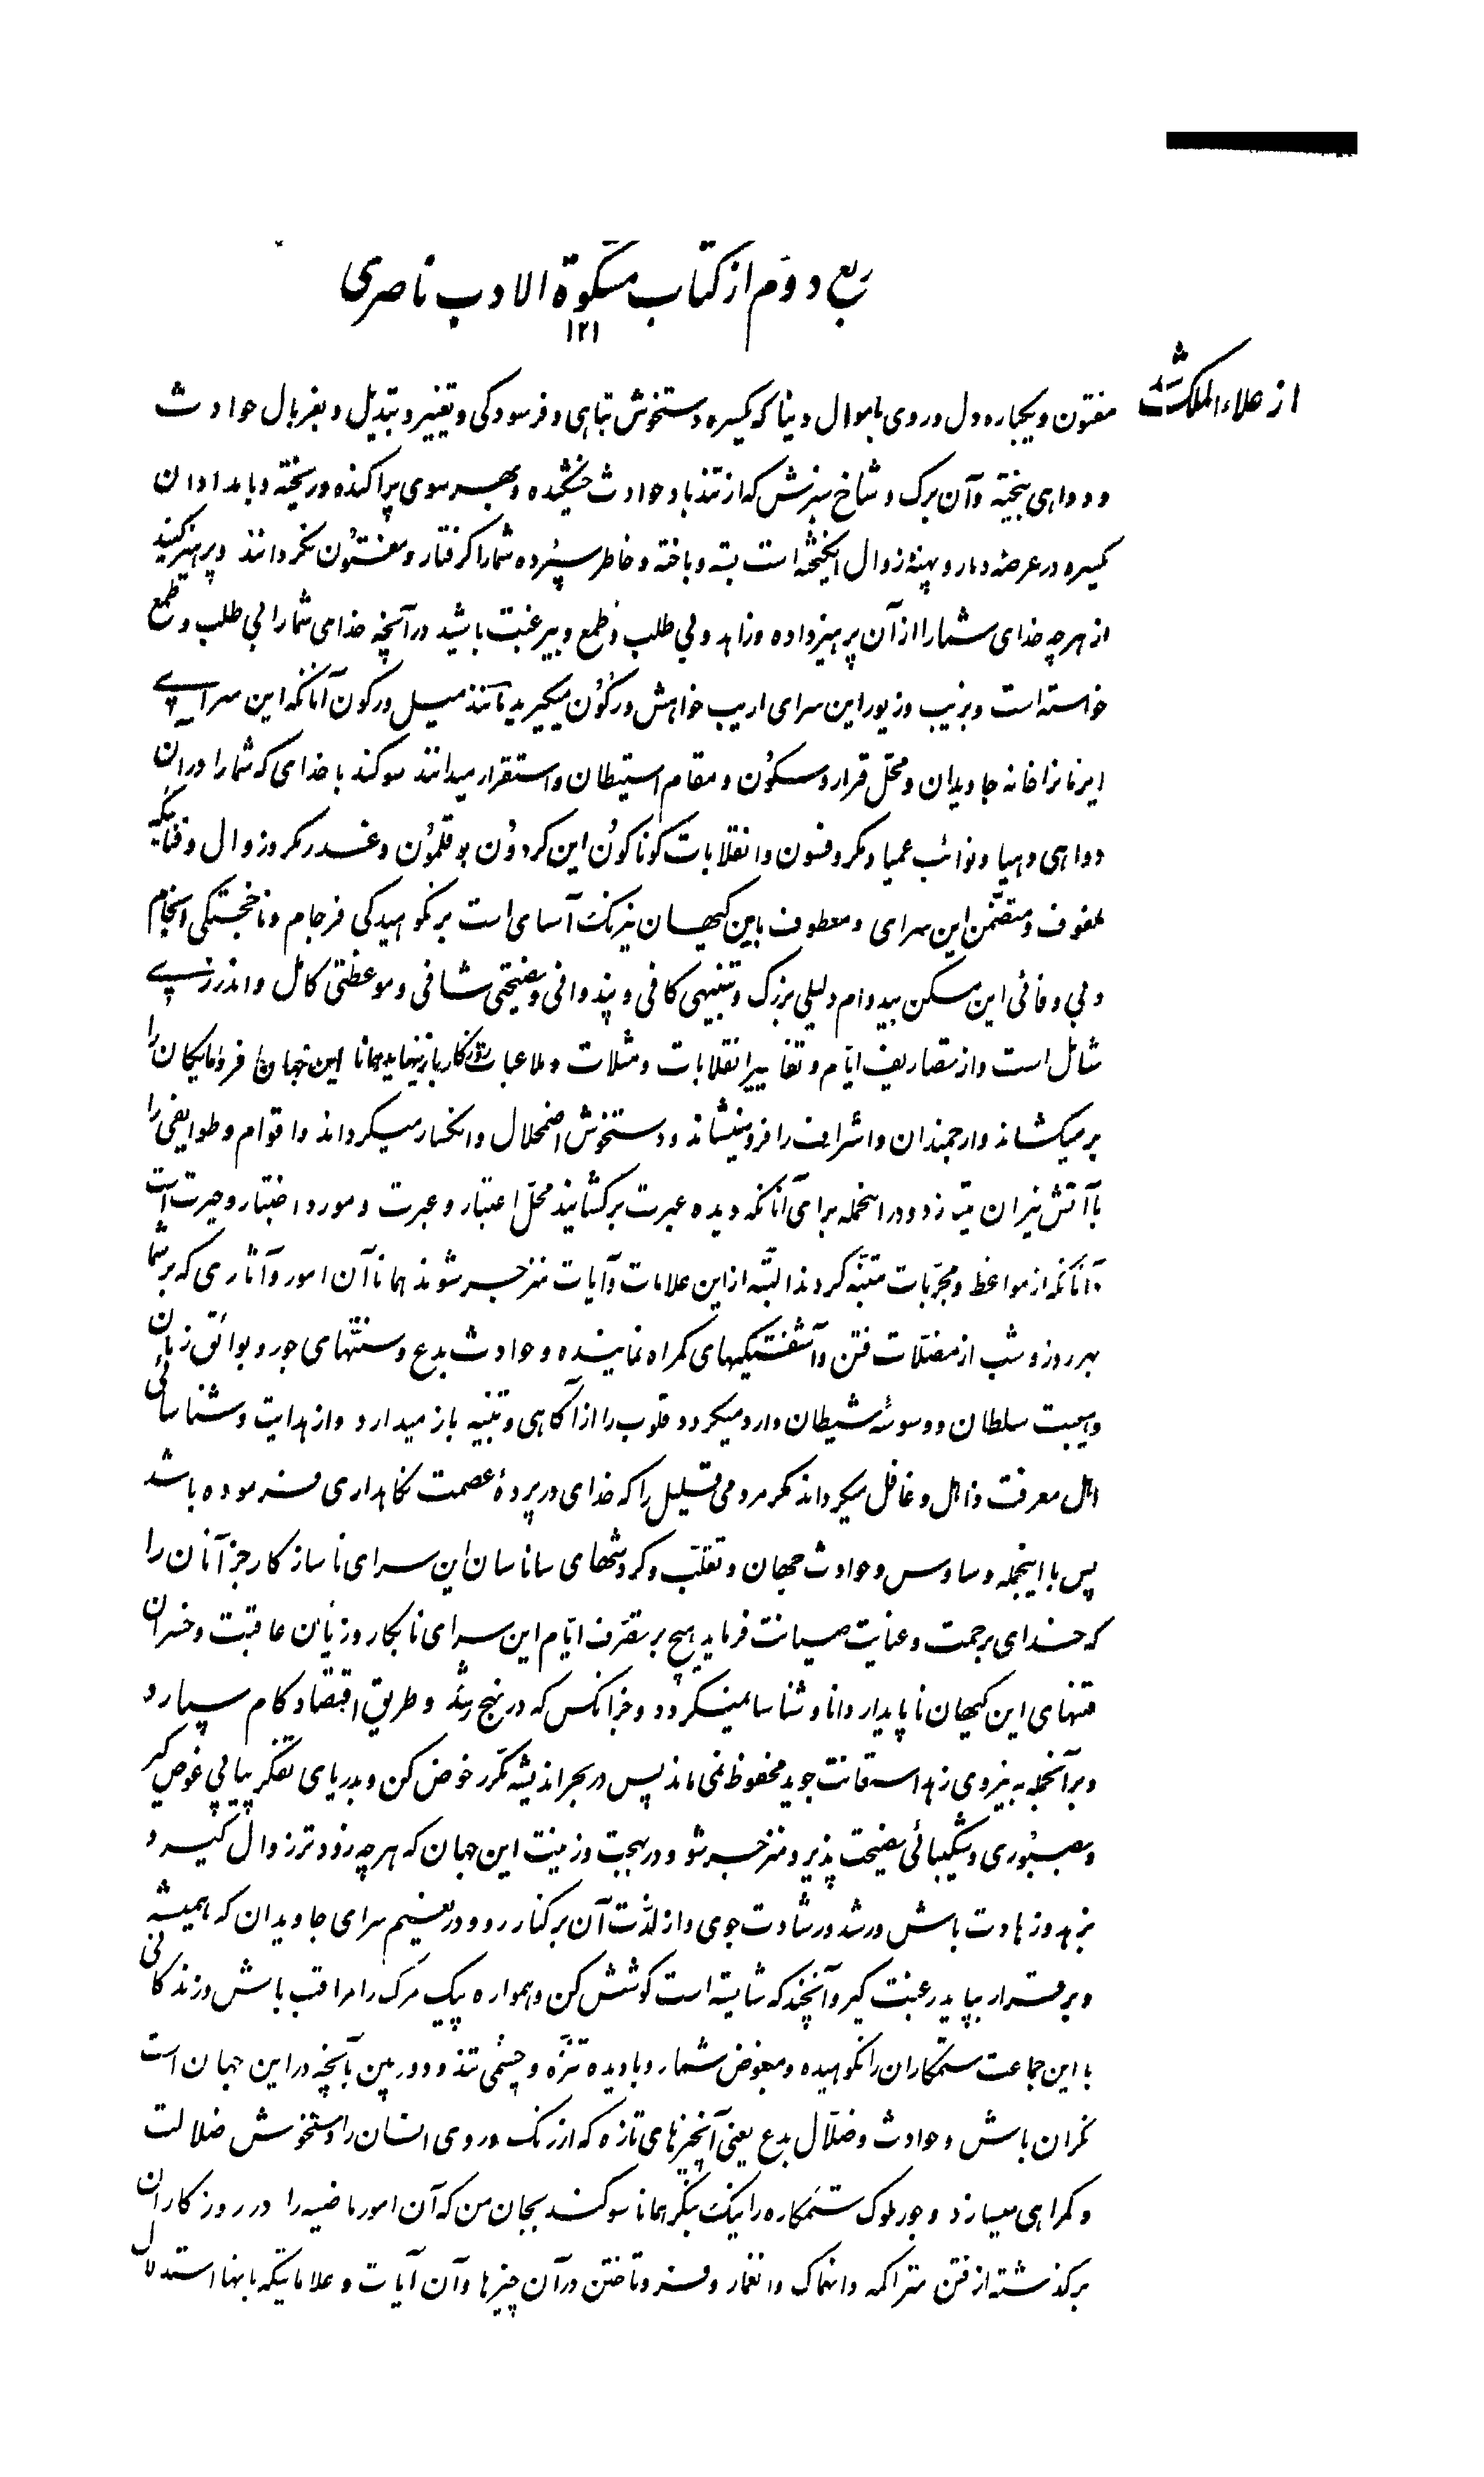 ربع دوّم از کتاب مشکوة الادب ناصری
۱۲۱
از علاء الملک شد
مفتون و یکباره دل و روی باموال دنیا که یکسره دستخوش تباهی و فرسودکی و تغییر و تبدیل و بغربال حوادث
و دواهی بیخته و آن برک و شاخ سبزش که از تندباد حوادث خشیکده و بهر سوی پراکنده و ریخته و بامدادان
یکسره در عرصهٔ دمار و پهنهٔ زوال انکیخته است بسته و باخته و خاطر سپرده شما را کرفتار و مفتون نکردانند و پرهیز کنید
از هرچه خدای شما را از آن پرهیز داده و زاهد و بی طلب و طمع و بیرغبت باشید در آنچه خدای شما را بی طلب و طمع
خواسته است و بزیب و زیور این سرای اریب خواهش و رکون میکیرید مانند میل و رکون آنانکه این سرای
ایرمانرا خانه جاویدان و محّل قرار و سکون و مقام استیطان و استقرار میدانند سوکند با خدای که شما را در آن
دواهی دهیا و نوائب عمیا و مکر و فسون و انقلابات کوناکون این کردون بوقلمون و غدر و مکر و زوال و فنائیکه
محفوف و متضمّن این سرای و معطوف باین کیهان نیرنک آسای است بر نکوهیدکی فرجام و ناخجستکی انجام
و بی وفائی این مسکن بیدوام دلیلی بزرک و تنبیهی کافی و پند وافی و نصیحتی شافی و موعظتی کامل و اندرزی
شامل است و از تصاریف ایّام و تغاییر انقلابات و مثلات و ملاعبات روزکار باز مینماید همانا این جهان فرومایکان را
بر میکشاند و ارجمندان و اشراف را فرو مینشاند و دستخوش اضمحلال و انکسار میکرداند و اقوام و طوایفی را
با آتش نیران میسازد و در اینجمله برای آنانکه دیده عبرت بر کشایند محّل اعتبار و عبرت و مورد اختبار و حیرت است
آنانکه از مواعظ و مجرّبات متنبّه کردند البتّه از این علامات و آیات منزجر شوند همانا آن امور و آثاری که بر شما
بهر روز و شب از مضلّات فتن و آشفتکیهای کمراه نماینده و حوادث بدع و سنتهای جور و بوائق زمان
و هیبت سلطان و وسوسهٔ شیطان وارد میکردد قلوب را از آکاهی و تنبیه باز میدارد و از هدایت و شناسائی
اهل معرفت ذاهل و غافل میکرداند مکر مردمی قلیل را که خدای در پردهٔ عصمت نکاهداری فرموده باشد
پس با اینجمله وساوس و حوادث جهان و تقلّب و کردشهای ساناسان این سرای ناسازکار جز آنان را
که خدای برحمت و عنایت صیانت فرماید هیچ بر تصرّف ایّام این سرای نابکار و زیان عاقبت و خسران
فتنهای این کیهان ناپایدار دانا و شناسا نمیکردد و جز آنکس که در نهج رشد و طریق اقتصاد کام سپارد
و بر آنجمله به نیروی زهد استعانت جوید محفوظ نمی ماند پس در بحر اندیشه مکّرر خوض کن و بدریای تفکّر پیاپی غوص کیر
و بصبوری و شکیبائی نصیحت پذیر و منزجر شو و در بهجت و زینت این جهان که هرچه زودتر زوال کیرد
بزهد و زهادت باش و رشد و رشادت جوی و از لذّت آن بر کنار رو و در نعیم سرای جاویدان که همیشه
و برقرار بپاید رغبت کیر و آنچند که شایسته است کوشش کن و همواره پیک مرک را مراقب باش و زندکانی
با این جماعت ستمکاران را نکوهیده و مبغوض شمار و با دیده تنزّه و چشمی تند و دور بین بآنچه در این جهان است
نکران باش و حوادث و ضلّال بدع یعنی آنچیزهای تازه که از رنک و روی انسان را دستخوش ضلالت
و کمراهی میسازد و جور ملوک ستمکاره را نیک بنکر همانا سوکند بجان من که آن امور ماضیه را در روزکاران
برکذشته از فتن متراکمه و انهماک و انغمار و فرو تاختن در آن چیزها و آن آیات و علاماتیکه بانها استدلال